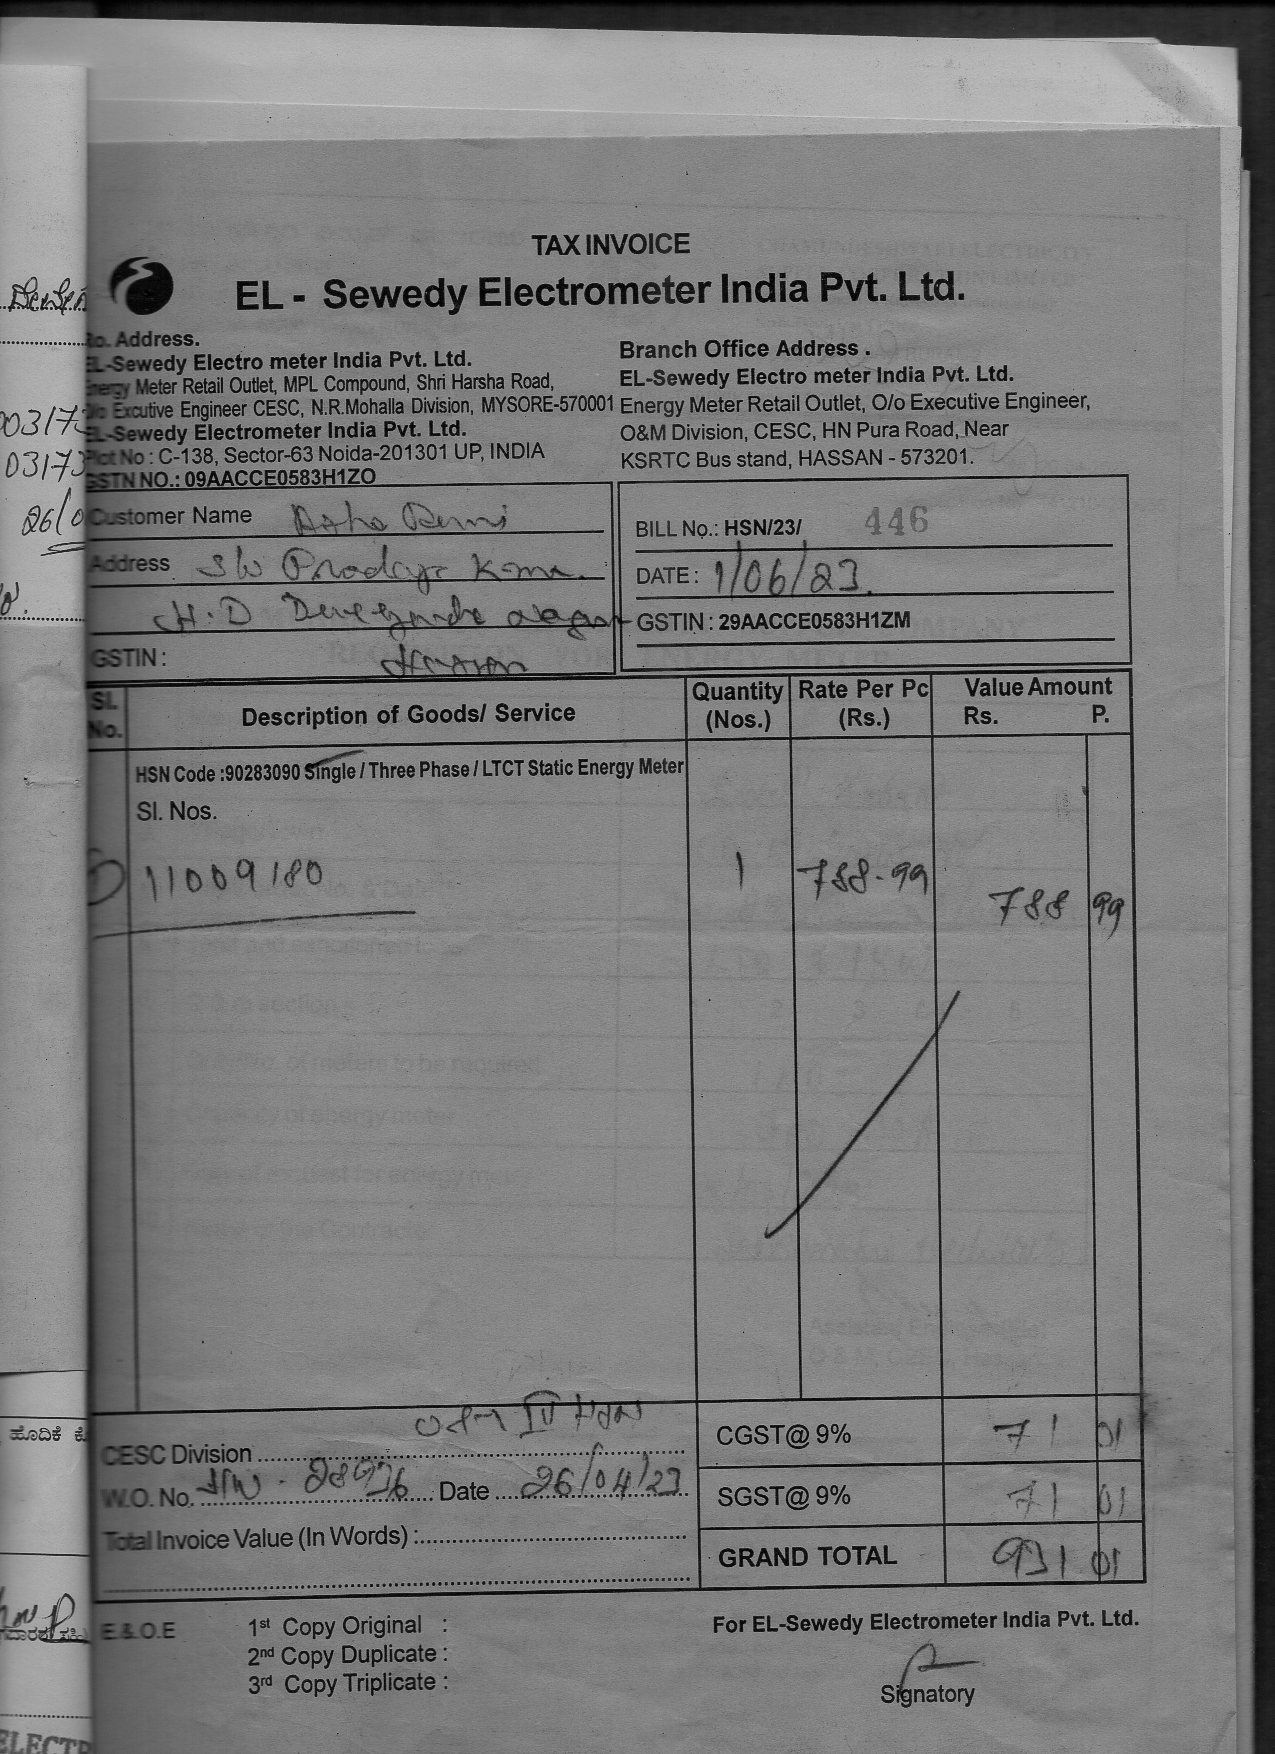 TAX INVOICE
EL - Sewedy Electrometer India Pvt. Ltd.
Address.
EL-Sewedy Electro meter India Pvt. Ltd.
Energy Meter Retail Outlet, MPL Compound, Shri Harsha Road,
Excutive Engineer CESC, N.R.Mohalla Division, MYSORE-570001
EL-Sewedy Electrometer India Pvt. Ltd.
Plot No : C-138, Sector-63 Noida-201301 UP, INDIA
GSTN NO.: 09AACCE0583H1ZO
Branch Office Address .
EL-Sewedy Electro meter India Pvt. Ltd.
Energy Meter Retail Outlet, O/o Executive Engineer,
O&M Division, CESC, HN Pura Road, Near
KSRTC Bus stand, HASSAN - 573201.
Customer Name Asha
Address
H.D
GSTIN : Hassan
BILL No.: HSN/23/ 446
DATE : 1/06/23.
GSTIN : 29AACCE0583H1ZM
Sl. No. Description of Goods/ Service Quantity (Nos.) Rate Per Pc (Rs.) Value Amount Rs. P.
HSN Code :90283090 Single / Three Phase / LTCT Static Energy Meter
Sl. Nos.
1) 11009180 1 788-99 788 99
CESC Division
W.O. No. Date 26/04/23
Total Invoice Value (In Words) :
CGST@ 9% 71 01
SGST@ 9% 71 01
GRAND TOTAL 931 01
E & O.E
1st Copy Original :
2nd Copy Duplicate :
3rd Copy Triplicate :
For EL-Sewedy Electrometer India Pvt. Ltd.
Signatory
03173
26/0
ಹೊದಿಕೆ